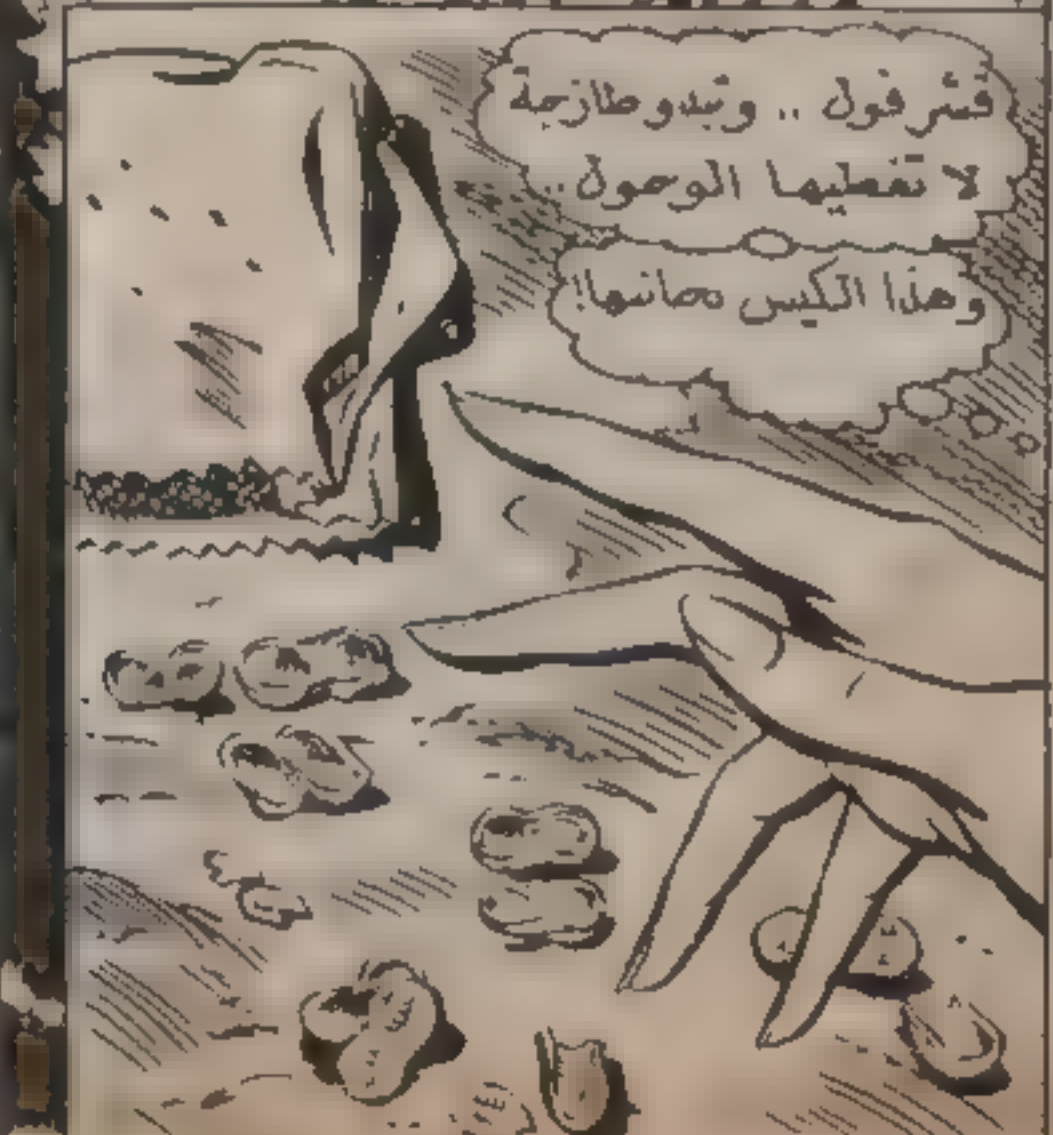 قشر فول .. وتبدو طازجة
لا تغطيها الوحول ..
وهذا الكيس بجانبها!